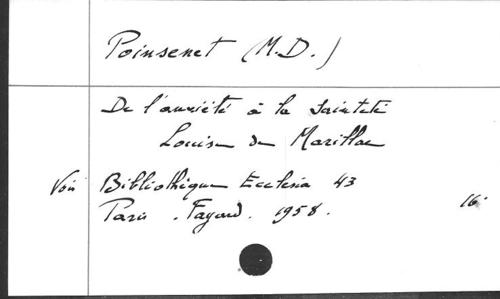 Poinsenet (M.D.)
De l'anxiété à la Sainteté
Louise de Marillac
Voir Bibliothèque Ecclesia 43
Paris . Fayard . 1958 . 16°